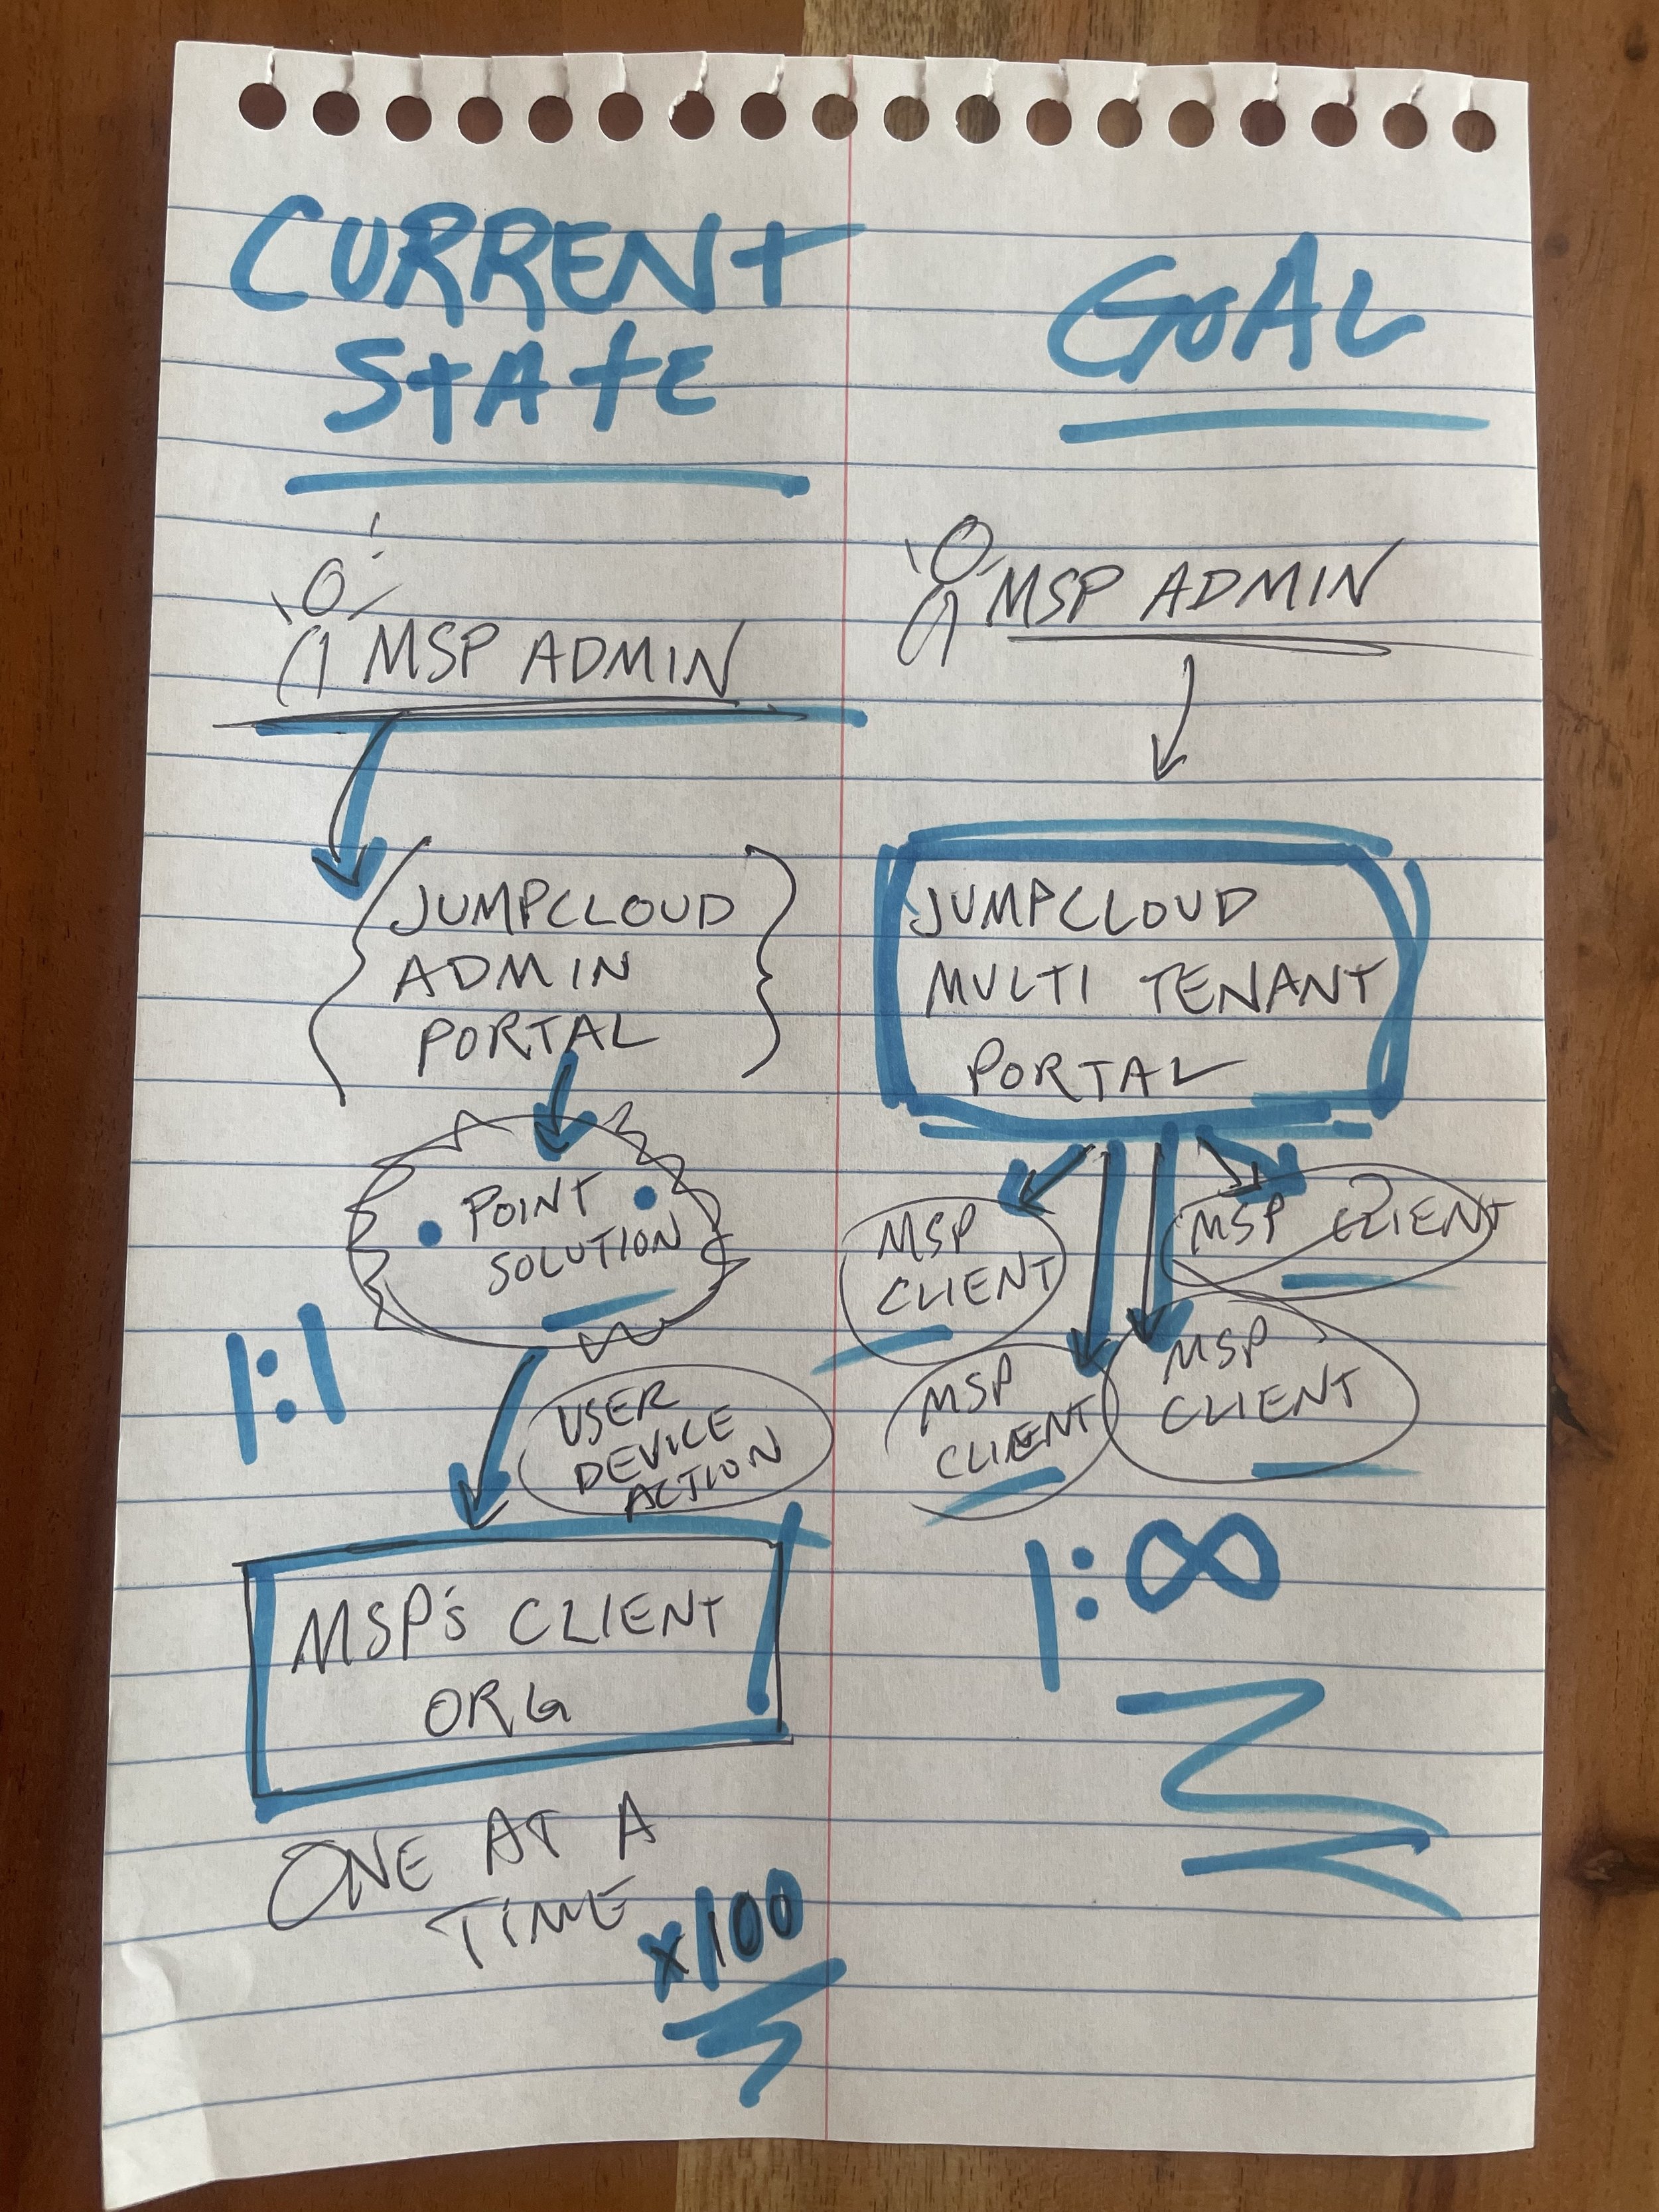 CURRENT
STATE
MSP ADMIN
JUMPCLOUD
ADMIN
PORTAL
POINT
SOLUTION
1:1
USER
DEVICE
ACTION
MSP's CLIENT
ORG
ONE AT A
TIME
x100
GOAL
MSP ADMIN
JUMPCLOUD
MULTI TENANT
PORTAL
MSP
CLIENT
MSP CLIENT
MSP
CLIENT
MSP
CLIENT
1:∞